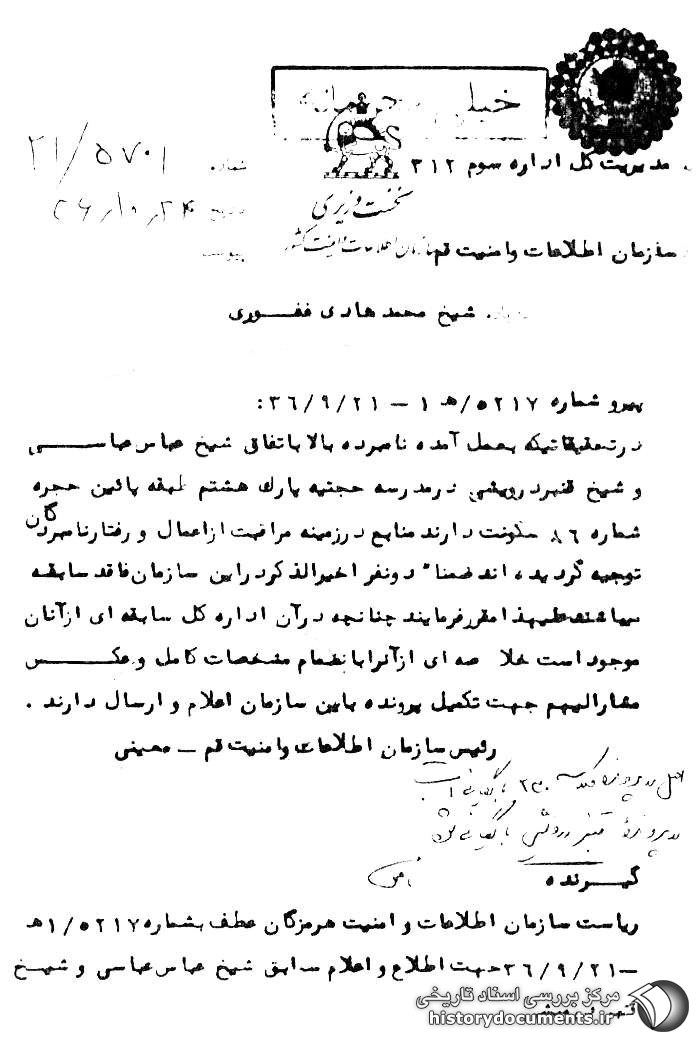 خیلی محرمانه
مدیریت کل اداره سوم ۳۱۲
شماره ۲۱/۵۷۰۱
نخست وزیری
سازمان اطلاعات و امنیت کشور
سازمان اطلاعات وامنیت قم
پیوست
شیخ محمد هادی غفوری
پیرو شماره ۵۲۱۷/ ﻫ ۱ – ۳۶/۹/۲۱:
درتحقیقاتیکه بعمل آمده نامبرده بالا باتفاق شیخ عباس عباسی
و شیخ قنبر درویشی درمدرسه حجتیه پارك هشتم طبقه پائین حجره
شماره ۸۶ سکونت دارند منابع درزمینه مراقبت ازاعمال و رفتارنامبردگان
توجیه گردیده اند ضمنا" دونفر اخیرالذکر دراین سازمان فاقد سابقه
میباشند علیهذا مقررفرمایند چنانچه درآن اداره کل سابقه ای ازآنان
موجود است خلا صه ای ازآنرا بانضمام مشخصات کامل و عکس
مشارالیهم جهت تکمیل پرونده باین سازمان اعلام و ارسال دارند .
رئیس سازمان اطلاعات وامنیت قم – معینی
بایگانی
پرونده قنبر درویشی بایگانی شود
گیرنده
ریاست سازمان اطلاعات و امنیت هرمزگان عطف بشماره ۵۲۱۷/۱ﻫ
–۳۶/۹/۲۱ جهت اطلاع و اعلام سابق شیخ عباس عباسی و شیخ
قنبر درویشی
مرکز بررسی اسناد تاریخی
historydocuments.ir